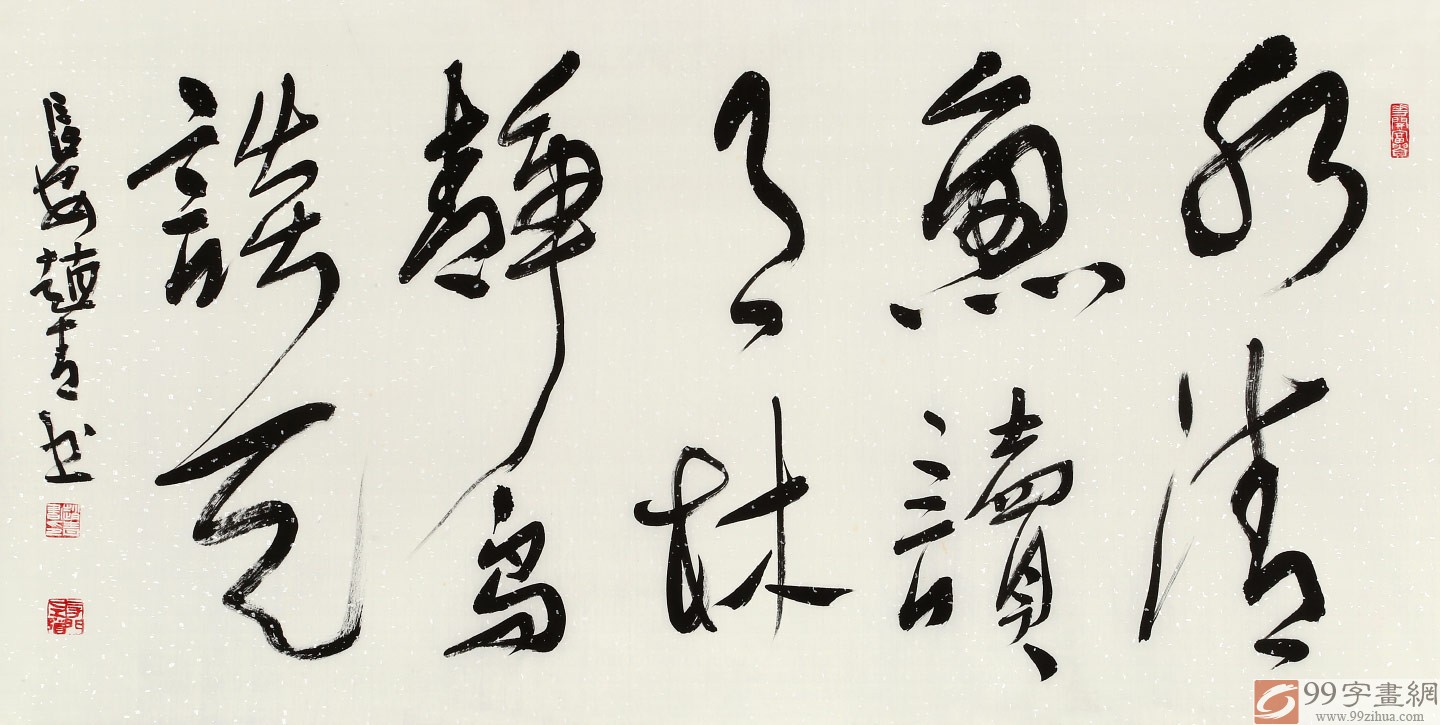 水清
魚讀
月林
靜鳥
談天
長安趙青书
99字畫網
www.99zihua.com